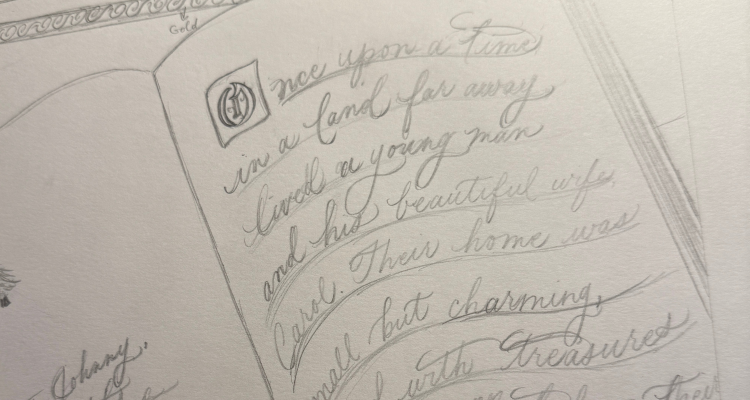 Gold
Once upon a time
in a land far away
lived a young man
and his beautiful wife
Carol. Their home was
small but charming,
with treasures
Johnny.